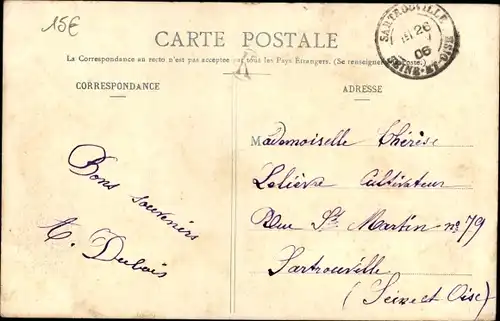 15€
CARTE POSTALE
La Correspondance au recto n'est pas acceptée par tous les Pays Étrangers. (Se renseigner Poste.)
CORRESPONDANCE
ADRESSE
SARTROUVILLE
26
06
SEINE-ET-OISE
Bons souvenirs
T. Dubois
Mademoiselle Thérèse
Lelièvre Cultivateur
Rue St Martin no 79
Sartrouville
(Seine et Oise)